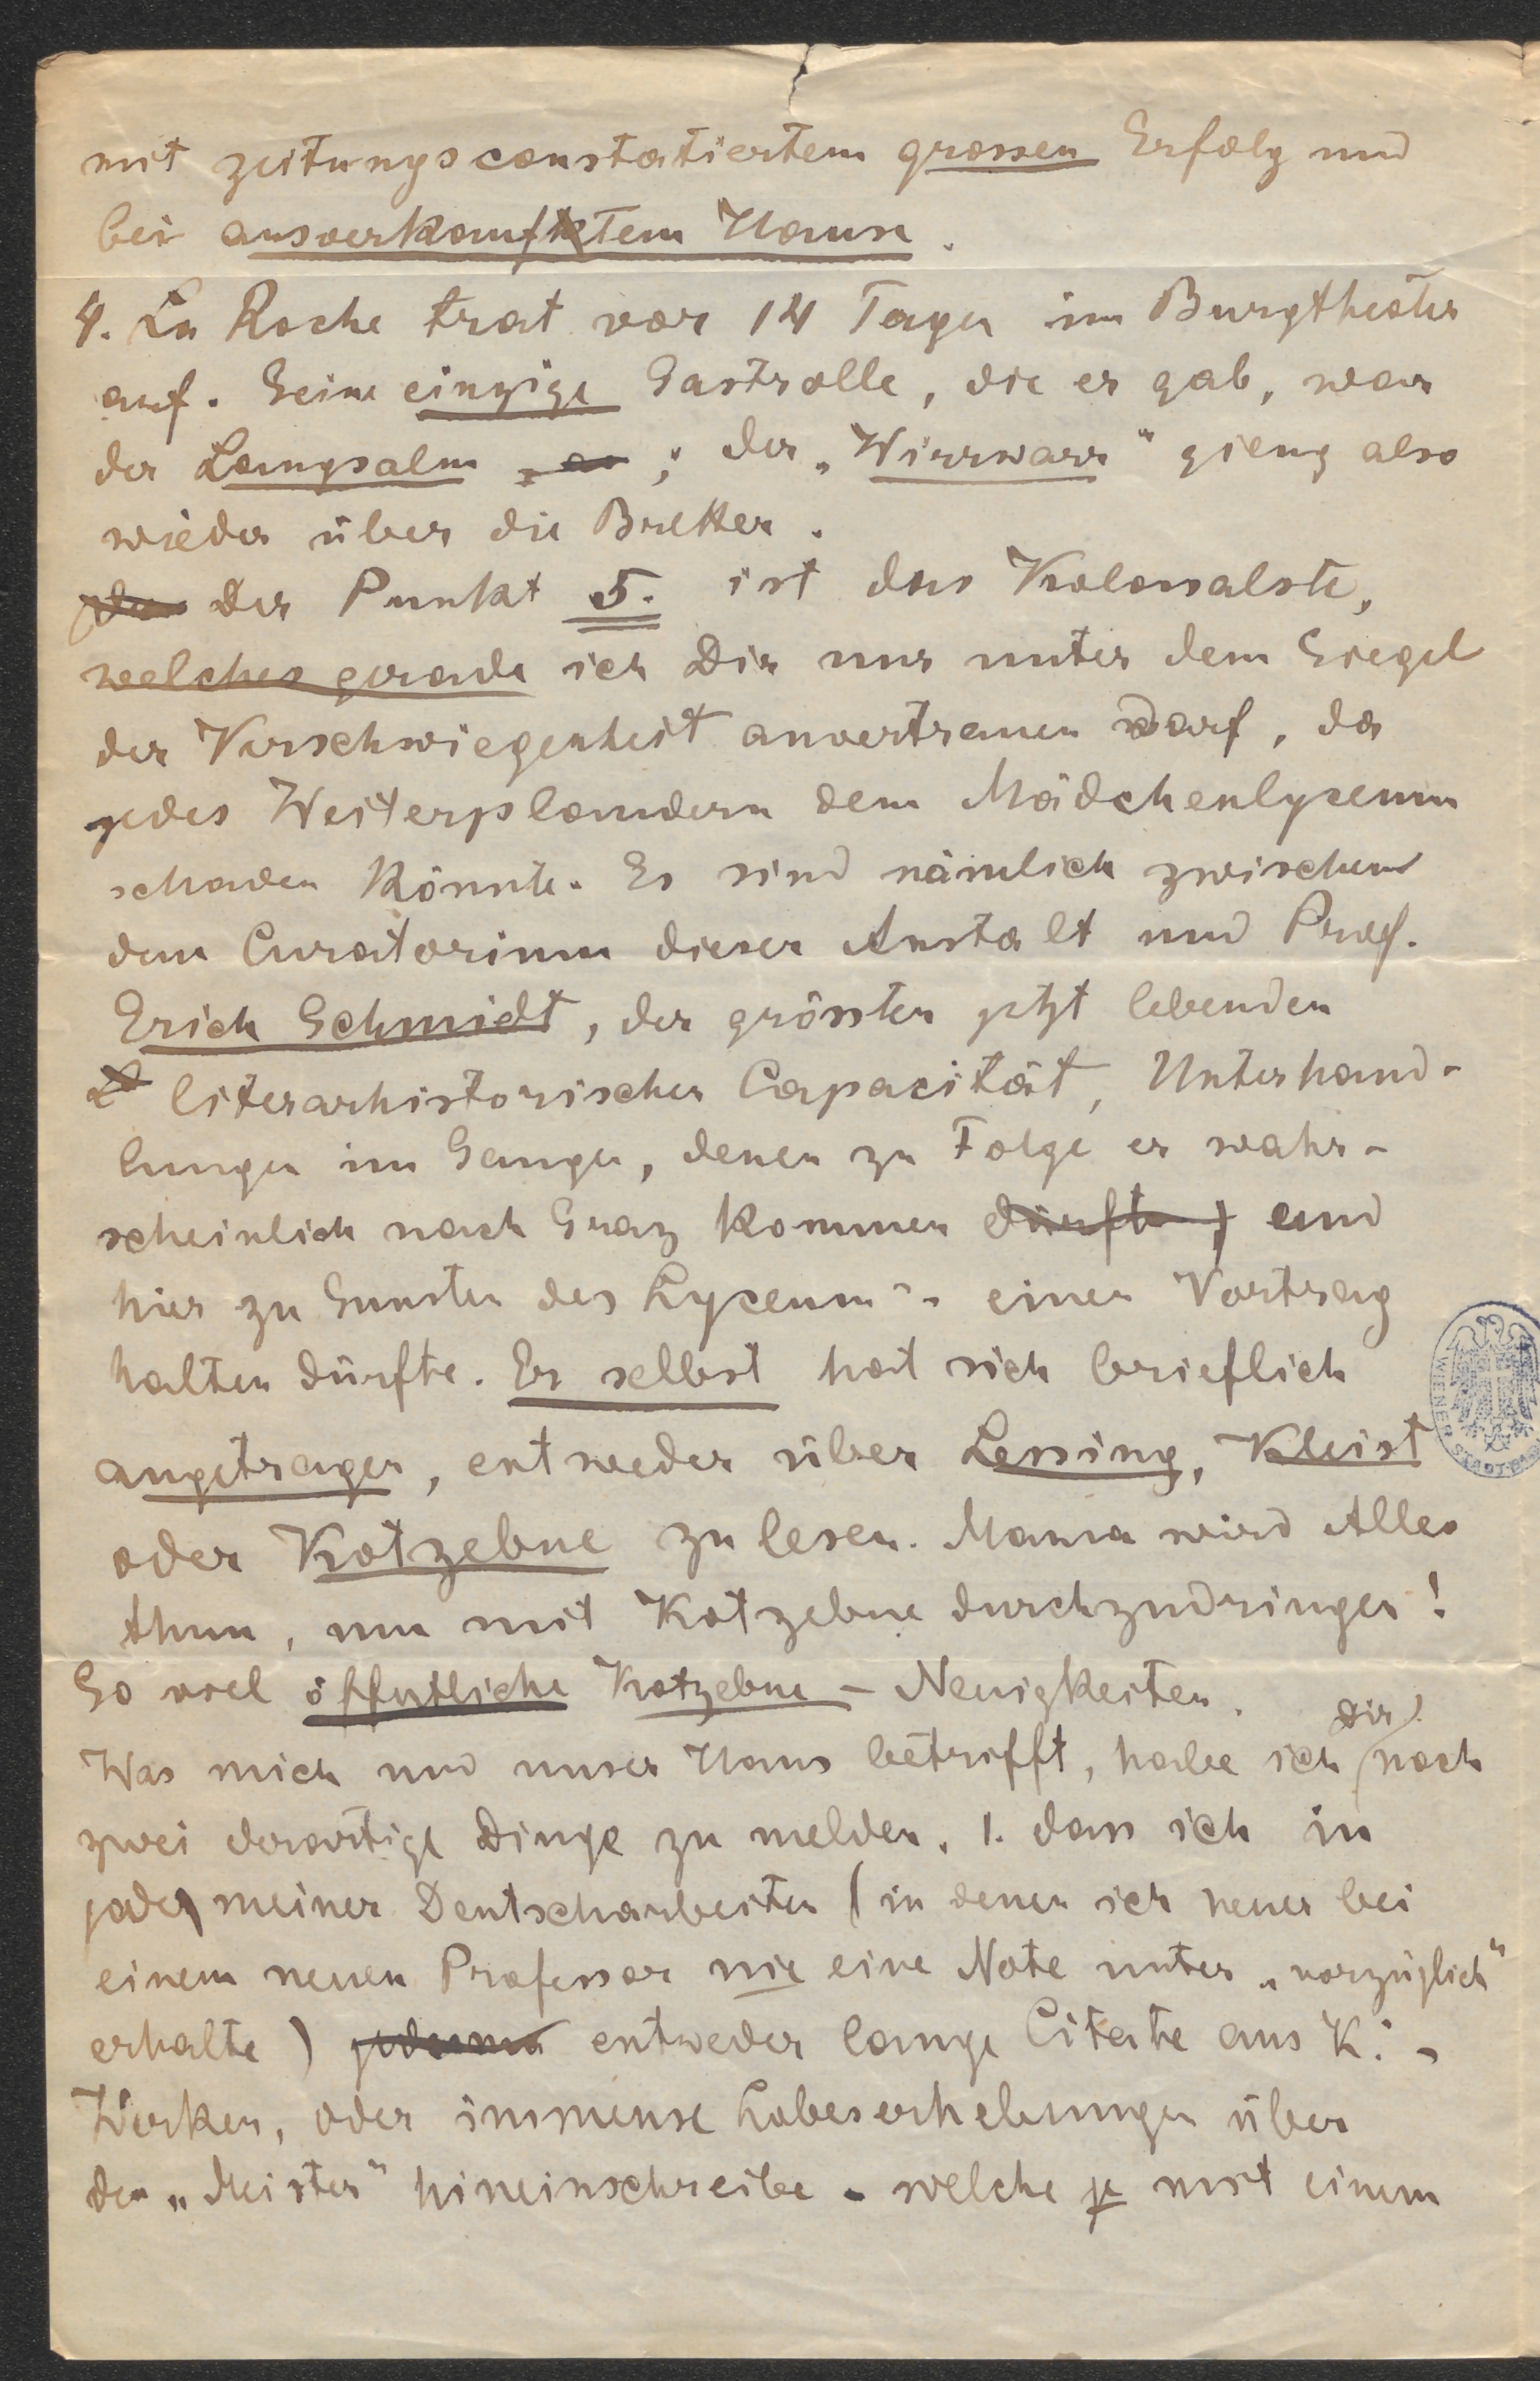 mit zeitungsconstatiertem grossen Erfolg und
bei ausverkauftem Hause.
4. La Roche trat vor 14 Tagen im Burgtheater
auf. Seine einzige Gastrolle, die er gab, war
der Langsalm ; der „Wirrwarr“ gieng also
wieder über die Bretter.
Der Punkt 5. ist das Kolossalste,
welches gerade ich Dir nur unter dem Siegel
der Verschwiegenheit anvertrauen darf, da
jedes Weiterplaudern dem Mädchenlyceum
schaden könnte. Es sind nämlich zwischen
dem Curatorium dieser Anstalt und Prof.
Erich Schmidt, der grössten jetzt lebenden
literarhistorischen Capacität, Unterhand-
lungen im Gange, denen zu Folge er wahr-
scheinlich nach Graz kommen und
hier zu Gunsten des Lyceums einen Vortrag
halten dürfte. Er selbst hat sich brieflich
angetragen, entweder über Lessing, Kleist
oder Kotzebue zu lesen. Mama wird Alles
thun, um mit Kotzebue durchzudringen!
So viel öffentliche Kotzebue-Neuigkeiten.
Was mich und unser Haus betrifft, habe ich Dir noch
zwei derartige Dinge zu melden. 1. dass ich in
jeder meiner Deutscharbeiten (in denen ich heuer bei
einem neuen Professor nie eine Note unter „vorzüglich“
erhalte) entweder lange Citate aus K.-
Werken, oder immense Lobeserhebungen über
den „Meister“ hineinschreibe - welche je mit einem
WIENER STADT